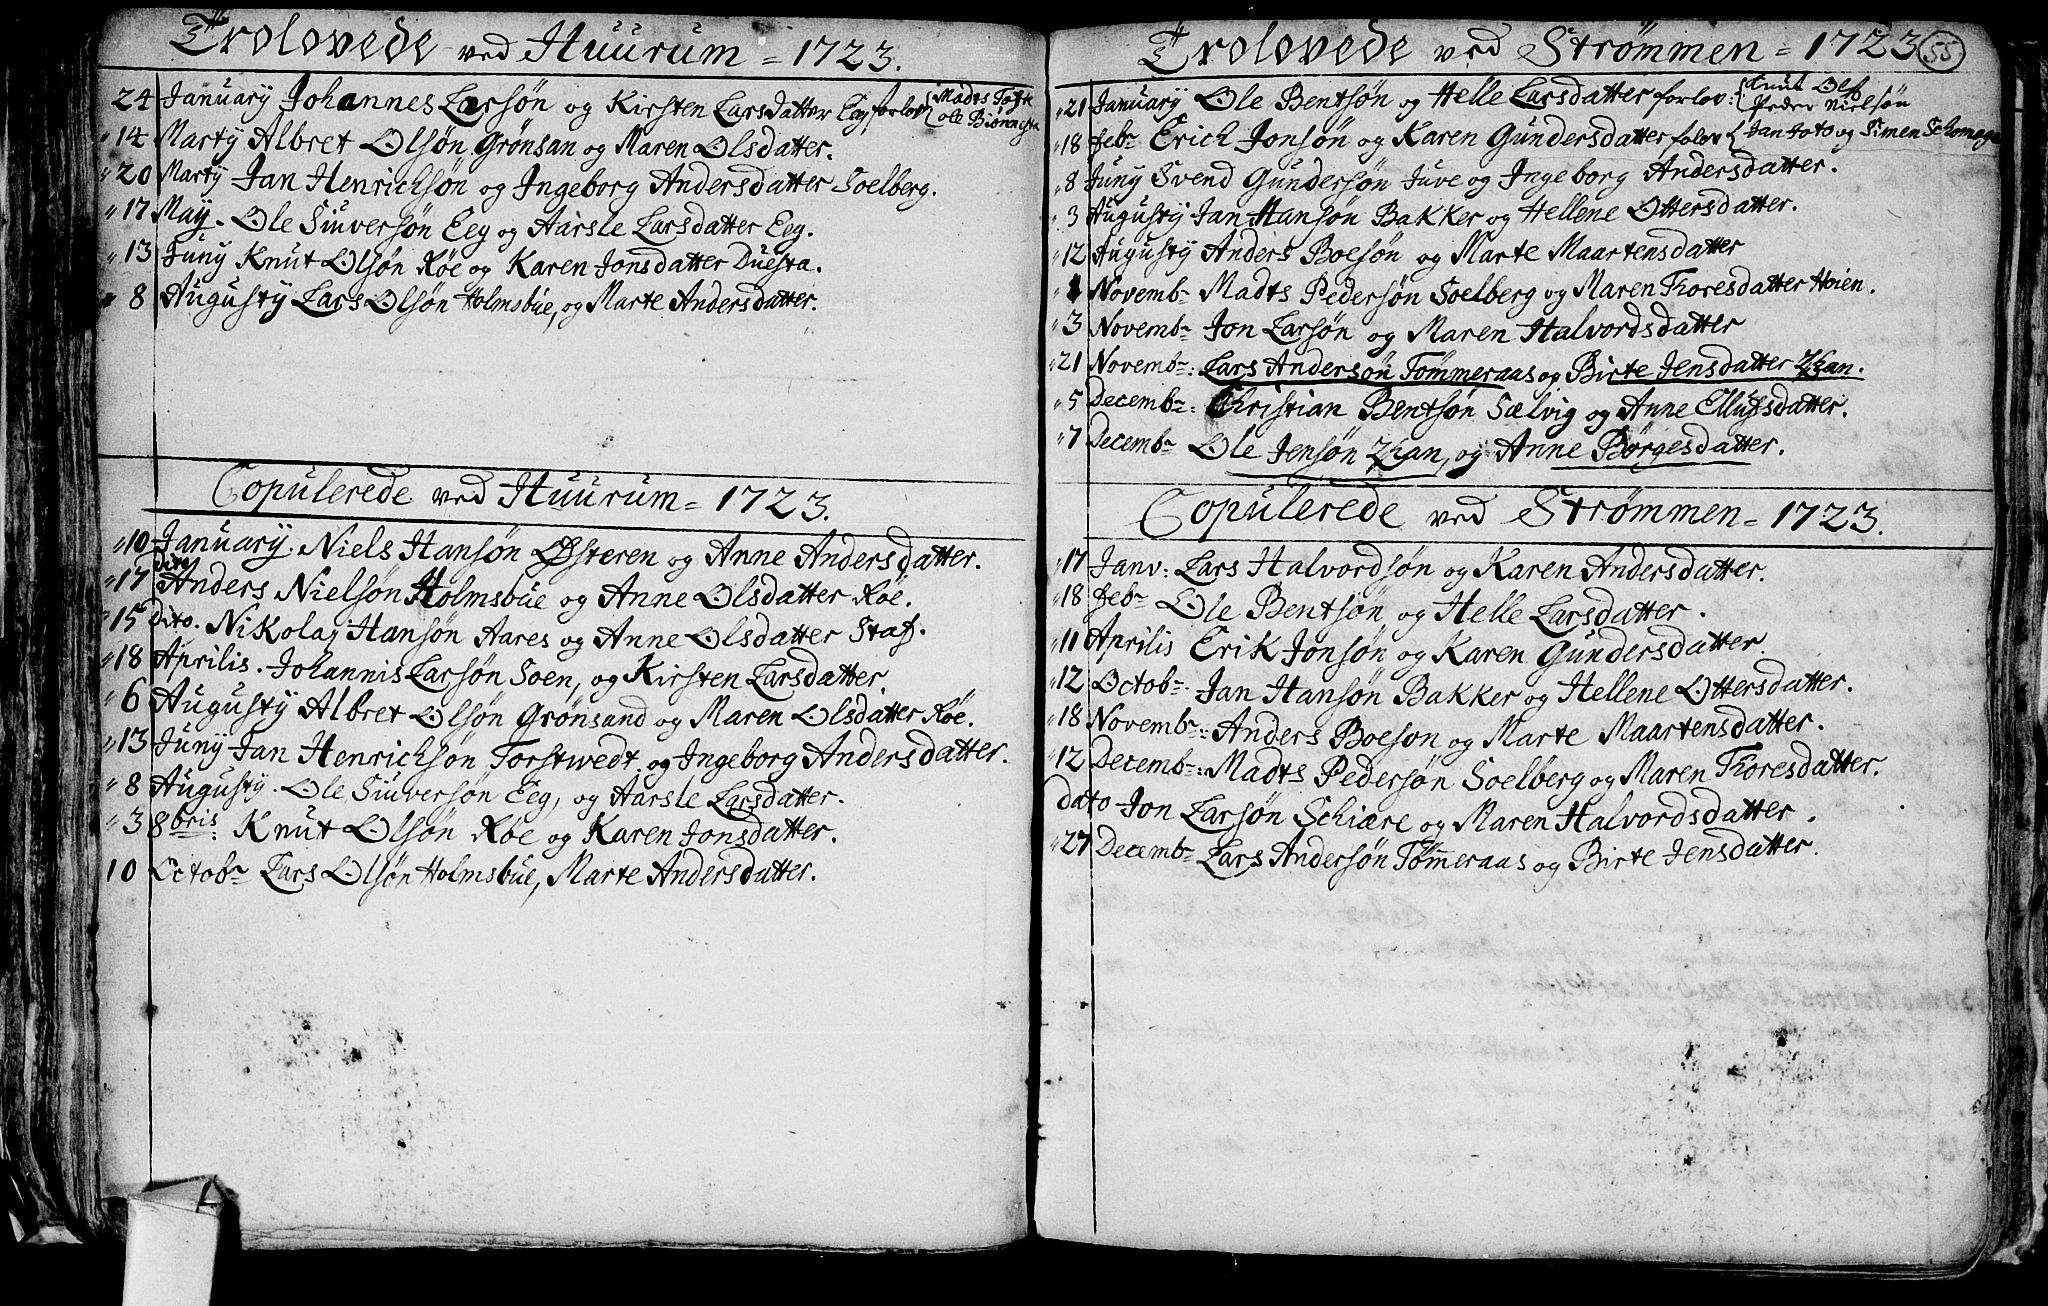 Trolovede ved Huurum = 1723.
24 January Johannes Larsøn og Kirsten Larsdatter forlov {Madts Tofk
ole Biönnesta
" 14 Marty Albret Olsøn Grönsan og Maren Olsdatter.
" 20 Marty Jan Henrichsøn og Ingeborg Andersdatter Soelberg.
" 17 May. Ole Siuversøn Eeg og Aarsle Larsdatter Eeg.
" 13 Juny Knut Olsøn Röe og Karen Jonsdatter Duesta.
" 8 Augusty Lars Olsøn Holmsbüe, og Marte Andersdatter.
Copulerede ved Huurum = 1723.
" 10 January. Niels Hansøn Østeren og Anne Andersdatter.
dito
" 17 Anders Nielsøn Holmsbüe og Anne Olsdatter Röe.
" 15 Dito. Nikolaj Hansøn Aares og Anne Olsdatter Staf.
" 18 Aprilis. Johannis Larsøn Soen, og Kirsten Larsdatter.
" 6 Augusty Albret Olsøn Grönsand og Maren Olsdatter Röe.
" 13 Juny Jan Henrichsøn Torstwedt og Ingeborg Andersdatter.
" 8 Augusty. Ole Siuversøn Eeg, og Aarsle Larsdatter.
" 3 8bris: Knut Olsøn Röe og Karen Jonsdatter.
10 Octobr Lars Olsøn Holmsbüe, Marte Andersdatter.
Trolovede ved Strømmen = 1723
55
" 21 January Ole Bentsøn og Helle Larsdatter forlov: {Knut Ols
Peder Nielsøn
" 18 febr Erich Jonsøn og Karen Gundersdatter folov {Jan Toto og Simen Schomage
" 8 Juny Svend Gundersøn Juve og Ingeborg Andersdatter.
" 3 Augusty Jan Hansøn Bakker og Hellene Ottersdatter.
" 12 Augusty Anders Boesøn og Marte Maartensdatter
" 1 Novembr Madts Pedersøn Soelberg og Maren Thoresdatter Høien.
" 3 Novembr Jon Larsøn og Maren Halvordsdatter
" 21 Novembr: Lars Andersøn Tömmeraas og Birte Jensdatter
" 5 Decembr: Christian Bentsøn Sælvig og Anne Ellufsdatter.
" 7 Decembr Ole Jensøn og Anne Børgesdatter.
Copulerede ved Strømmen = 1723.
" 17 Janv: Lars Halvordsøn og Karen Andersdatter.
" 18 febr Ole Bentsøn, og Helle Larsdatter.
" 11 Aprilis Erik Jonsøn og Karen Gundersdatter.
" 12 Octobr. Jan Hansøn Bakker og Hellene Ottersdatter.
" 18 Novembr: Anders Boeson og Marte Maartensdatter.
" 12 Decembr: Madts Pedersøn Soelberg og Maren Thoresdatter.
dato Jon Larsøn Schiære og Maren Halvordsdatter.
" 27 Decembr Lars Andersøn Töm̄eraas og Birte Jensdatter.